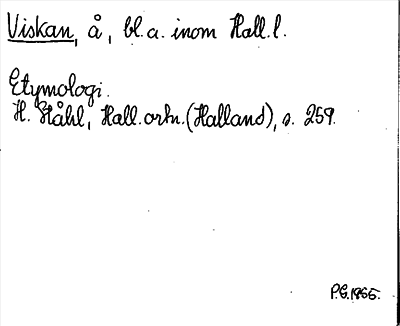 Viskan, å, bl.a. inom Hall.l.
Etymologi.
H. Ståhl, Hall.ortn.(Halland), s. 259.
P.G.1965.